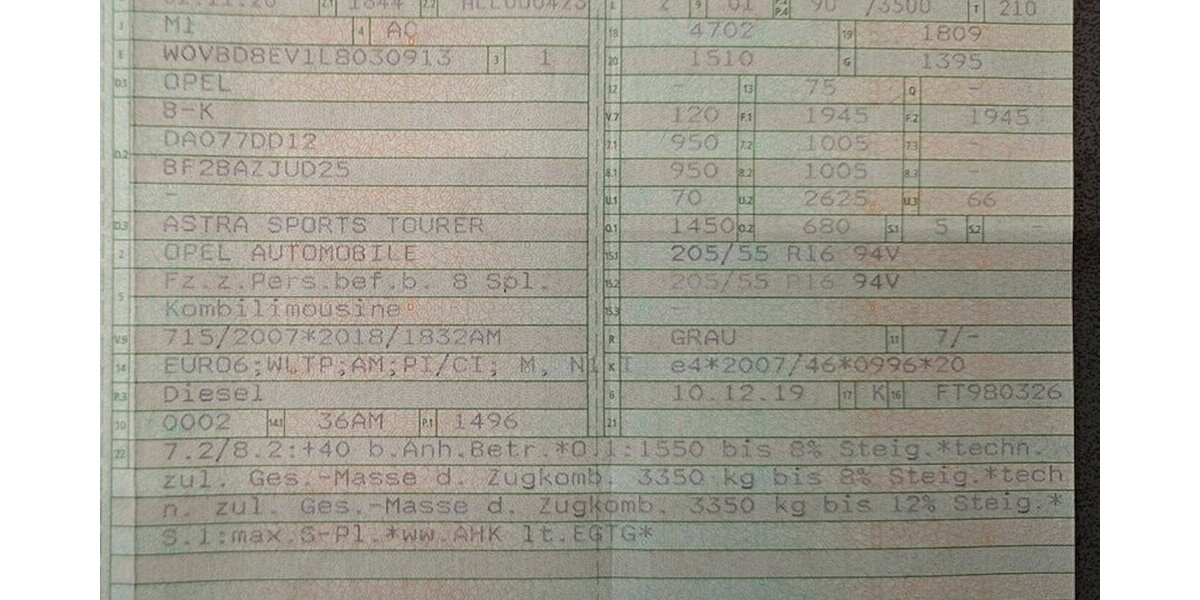 01.11.20 2.1 1844 2.2 ALL000423 L 2 9 01 P.4 90 /3500 T 210
J M1 4 AC 18 4702 19 1809
E W0VBD8EV1L8030913 3 1 20 1510 G 1395
D.1 OPEL 12 - 13 75 Q -
B-K V.7 120 F.1 1945 F.2 1945
D.2 DA077DD12 7.1 950 7.2 1005 7.3 -
BF2BAZJUD25 8.1 950 8.2 1005 8.3 -
- U.1 70 U.2 2625 U.3 66
D.3 ASTRA SPORTS TOURER O.1 1450 O.2 680 S.1 5 S.2 -
2 OPEL AUTOMOBILE 15.1 205/55 R16 94V
5 Fz.z.Pers.bef.b. 8 Spl. 15.2 205/55 R16 94V
Kombilimousine 15.3 -
V.9 715/2007*2018/1832AM R GRAU 11 7/-
14 EURO6;WLTP;AM;PI/CI; M, N1 I K e4*2007/46*0996*20
P.3 Diesel 6 10.12.19 17 K 16 FT980326
10 0002 14.1 36AM P.1 1496 21
22 7.2/8.2:+40 b.Anh.Betr.*O.1:1550 bis 8% Steig.*techn.
zul. Ges.-Masse d. Zugkomb. 3350 kg bis 8% Steig.*tech
n. zul. Ges.-Masse d. Zugkomb. 3350 kg bis 12% Steig.*
S.1:max.S-Pl.*ww.AHK lt.EGTG*